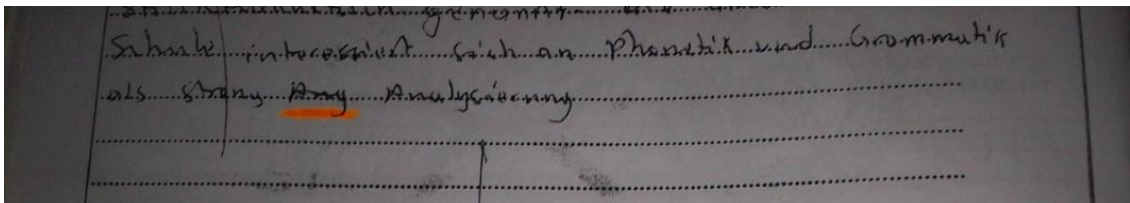 genannt
Schule interessiert sich an Phonetik und Grammatik
als streng Any Analysierung